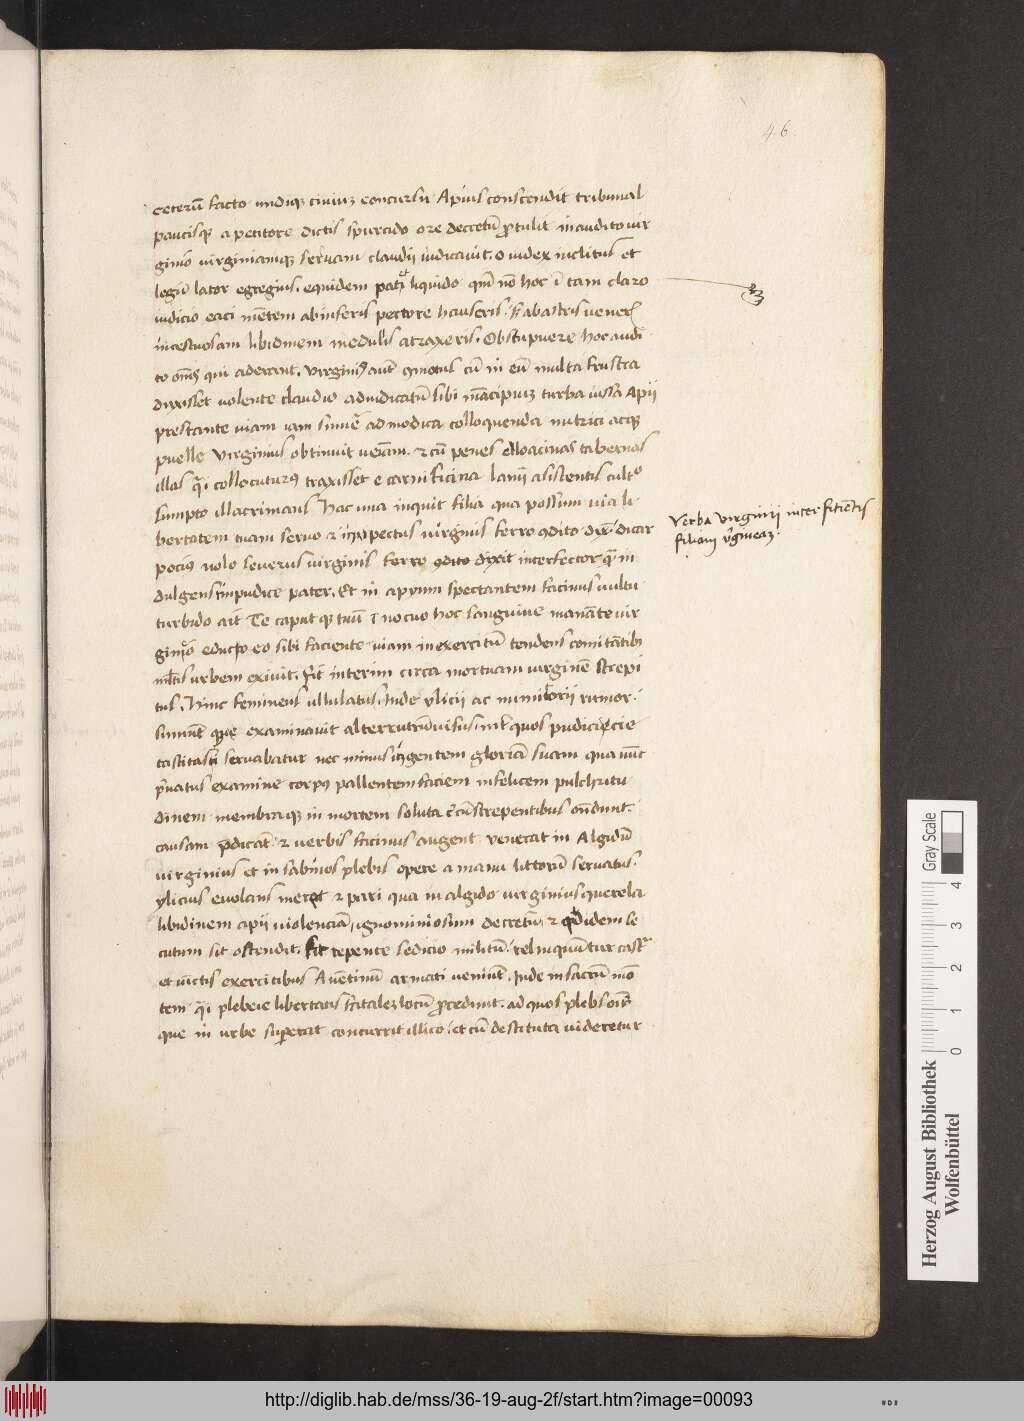 46
ceterū facto undiqz ciuiuz concursu Apius conscendit tribunal
paucisqz a petitore dictis spurcido ore decretū protulit inaudito vir
ginio virginiamqz seruam claudii iudicauit. o iudex inclitus et
legū lator egregius. equidem liquido qm̄ nō hoc ī tam claro
iudicio eaci mētem ab inferis pectore hauseris
incestuosam libidinem medulis atraxeris. Obstupuere hoc audi
to oms qui aderant. virginiꝰ aut̄ cū in eū multa frustra
dixisset volente claudio adiudicatū sibi mācipiuz turba iussa Apii
prestante viam iam sinuē ad modica colloquenda nutrici atqz
puelle virginius obtinuit veniam. et cū penes cloacinas tabernas
illas qͣi collocuturꝰ traxisset e carnificina lanii asistentis cultͦ
sumpto illacrimans hac una inquit filia qua possum via li
bertatem tuam seruo et in pectus virginis ferro 9dito dix: dicar
pociꝰ uolo seuerus virginis ferro 9dito dixit interfector qͣ in
dulgens impudice pater. Et in apium spectantem facinus vultu
turbido ait Te caput qz tuū inocuo hoc sanguine manāte vir
ginio educto eo sibi faciente viam in exercitū tendens comitātibz
mltis urbem exiuit. fit interim circa mortuam virginē strepi
tus. Hinc femineus ullulatus. Inde ylicii ac numitorii rumor.
sunt que examinauit alterrutrū visus, nr̄ quos pudicicie
castitas seruabatur nec minus ingentem gloriā suam qua nūc
priuatus examine corpꝰ pallentem faciem infelicem pulchritu
dinem membraqz in mortem soluta cͥcūstrepentibus ondunt.
causam p̄dicāt et verbis facinus augent venerat in Algidū
virginius et in sabinos plebis opere a manu littorū seruatus.
ylicius euolans et pari qua in algido virginius querela
libidinem apii violenciā, ignominiosum decretū, et qd idem se
cutum sit ostendit. fit repente sedicio militū. relinquūtur castͣ
et victis exercitibus Auentinū armati veniūt. Inde in sacrū mō
tem qͣi plebeie libertatis fatalez locū p̄cedunt. ad quos plebs oīs
que in urbe superat concurrit illico. et cū destituta videretur
Verba virginii interficiētis
filiam vͥgineaz.
Gray Scale
0 1 2 3 4
Herzog August Bibliothek
Wolfenbüttel
http://diglib.hab.de/mss/36-19-aug-2f/start.htm?image=00093